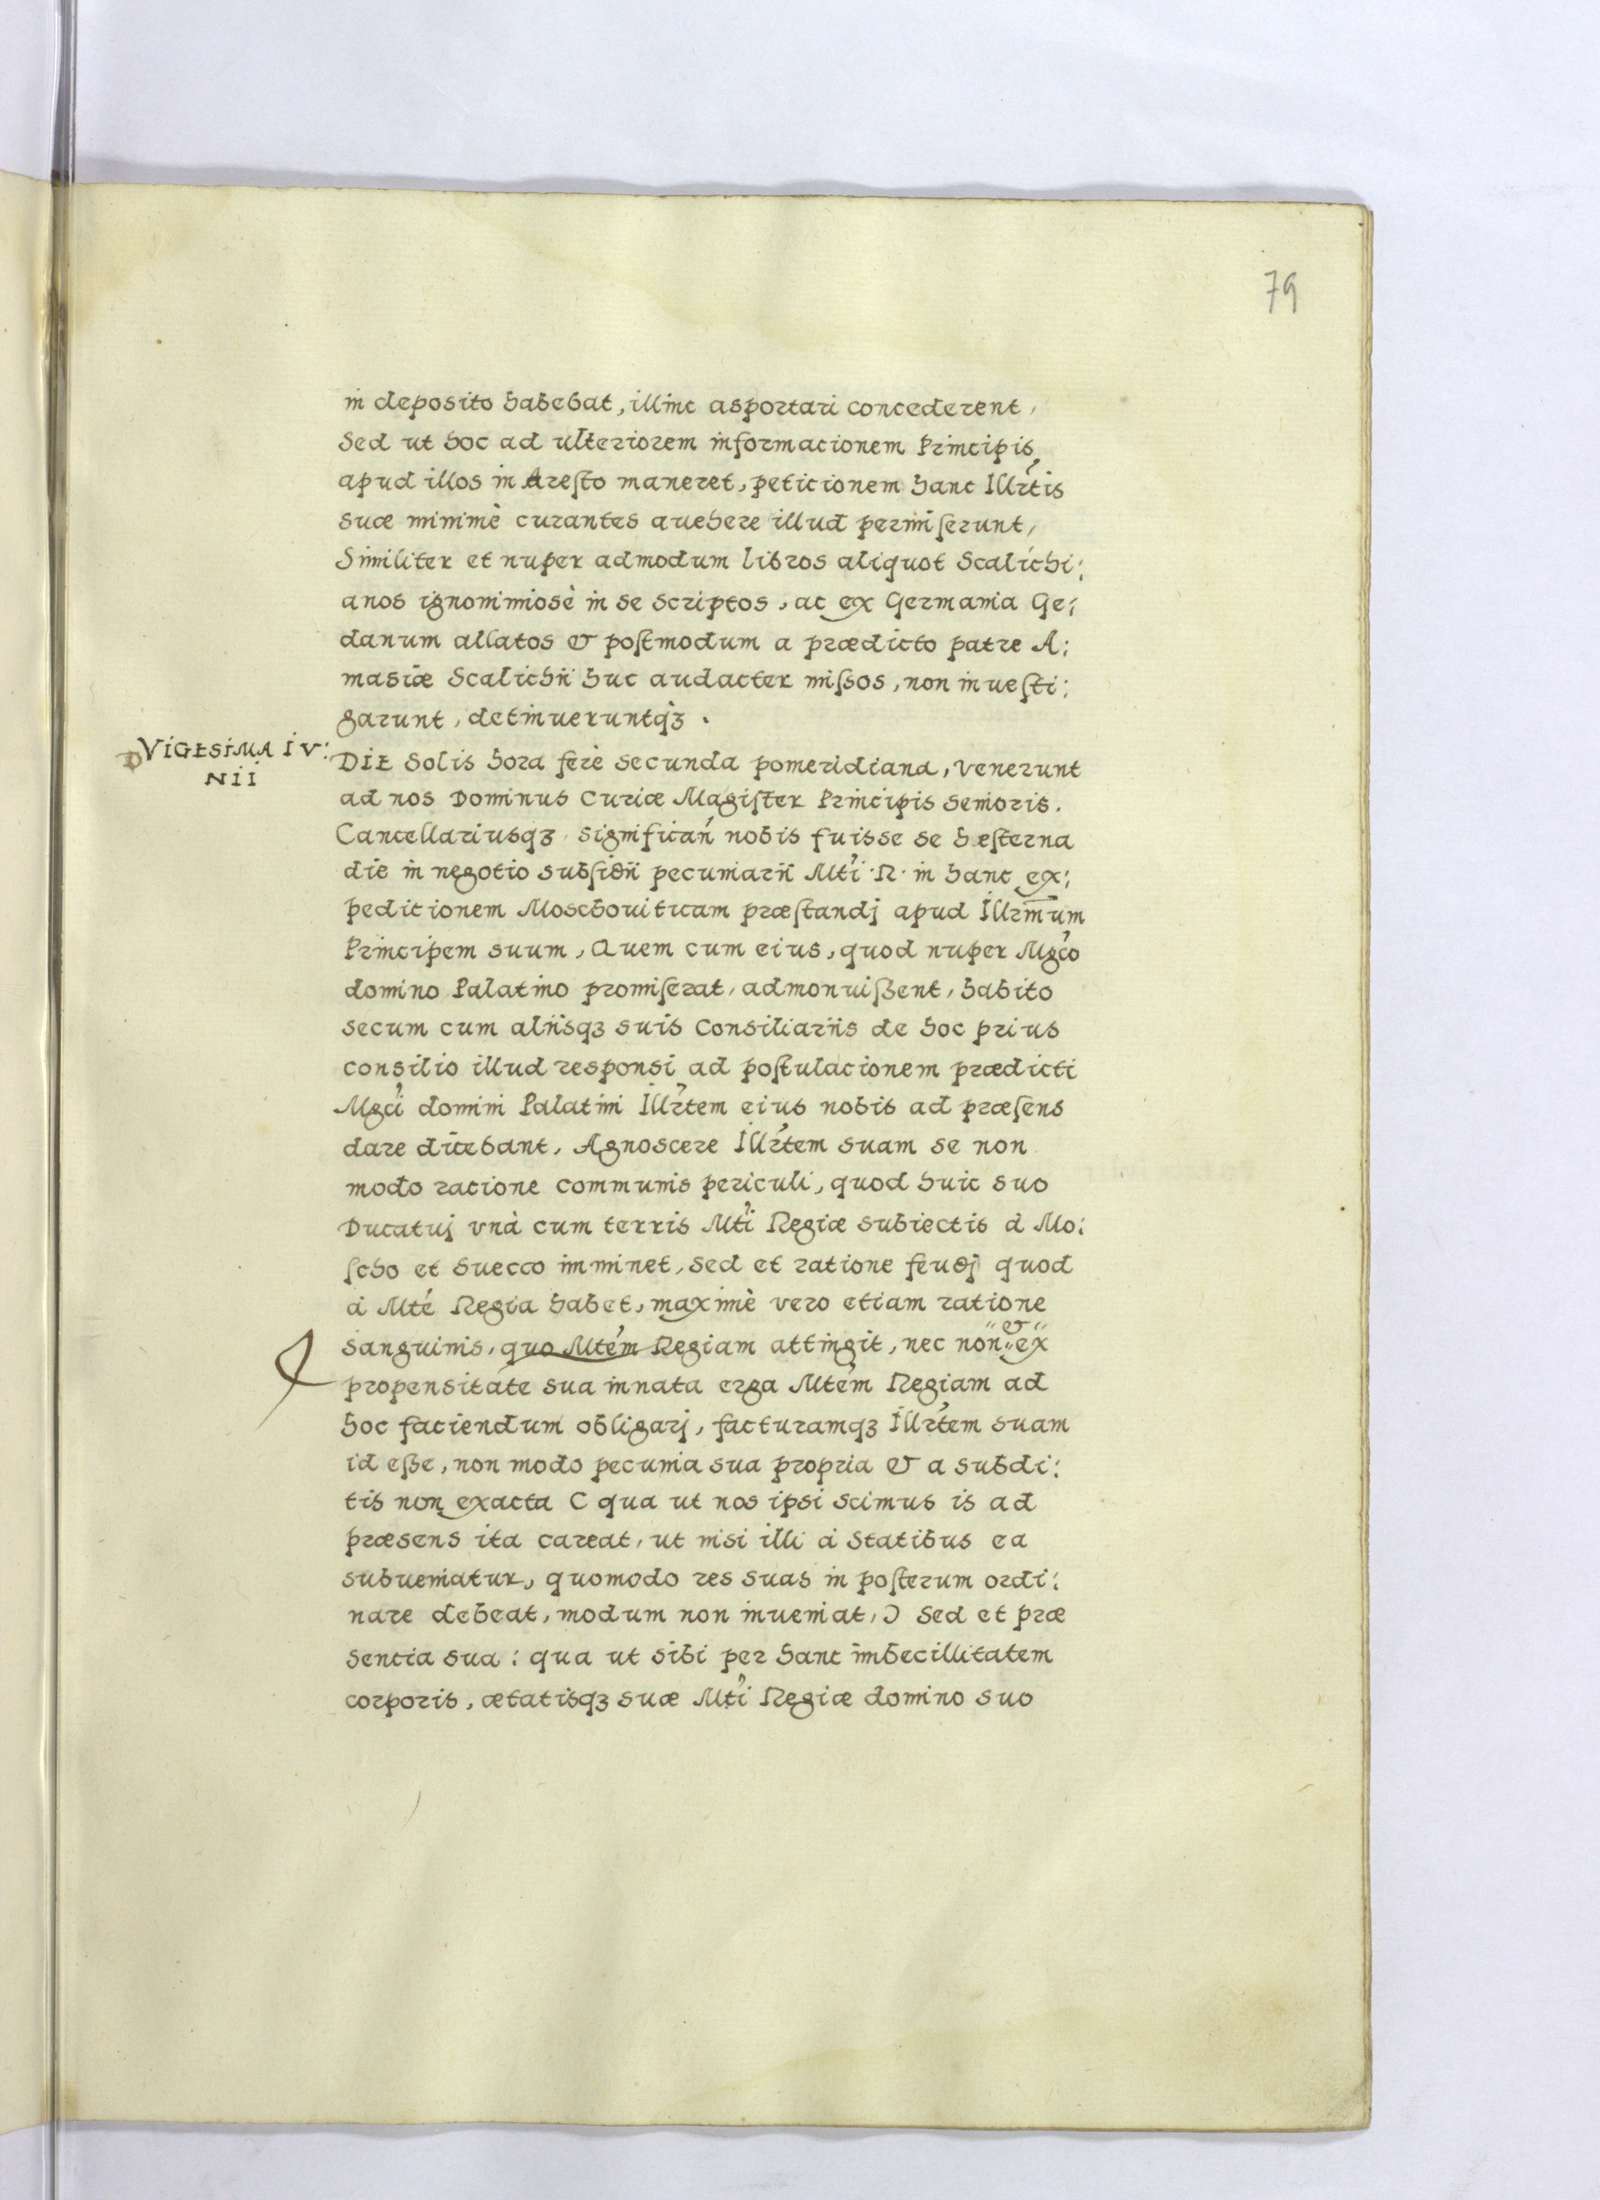 79
in deposito habebat, illinc asportari concederent,
Sed ut hoc ad ulteriorem informacionem Principis,
apud illos in Aresto maneret, peticionem hanc Illrtis
suæ minimè curantes auehere illud permiserunt,
Similiter et nuper admodum libros aliquot Scalichi:
anos ignominiosè in se scriptos, ac ex Germania Ge:
danum allatos & postmodum a prædicto patre A:
masiæ Scalichii huc audacter missos, non inuesti:
garunt, detinueruntqꝫ.
VIGESIMA IV:
NII
DIE Solis hora ferè secunda pomeridiana, venerunt
ad nos Dominus Curiæ Magister Principis senioris.
Cancellariusqꝫ significań nobis fuisse se hesterna
die in negotio subsidii pecuniarii Mti R. in hanc ex:
peditionem Moschouiticam præstandj apud Illrmum
Principem suum, Quem cum eius, quod nuper Mgco
domino Palatino promiserat, admonuissent, habito
secum cum aliisqꝫ suis Consiliariis de hoc prius
consilio illud responsi ad postulacionem prædicti
Mgci domini Palatini Illrtem eius nobis ad præsens
dare dicebant, Agnoscere Illrtem suam se non
modo racione communis periculi, quod huic suo
Ducatuj vnà cum terris Mti Regiæ subiectis à Mo:
scho et Suecco imminet, sed et ratione feudj quod
à Mte Regia habet, maximè vero etiam ratione
sanguinis, quo Mtem Regiam attingit, nec non & ex
propensitate sua innata erga Mtem Regiam ad
hoc faciendum obligarj, facturamqꝫ Illrtem suam
id esse, non modo pecunia sua propria & a subdi:
tis non exacta C qua ut nos ipsi scimus is ad
præsens ita careat, ut nisi illi à Statibus ea
subueniatur, quomodo res suas in posterum ordi:
nare debeat, modum non inueniat, Ɔ Sed et præ
sencia sua: qua ut sibi per hanc imbecillitatem
corporis, ætatisqꝫ suæ Mti Regiæ domino suo